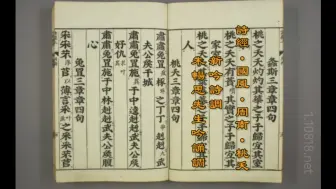 詩經．國風．周南．桃夭
新吟詩調
先生吟誦調
螽斯三章章四句
桃之夭夭灼灼其華之子于歸宜其室
桃之夭夭有蕡其實之子于歸宜其
家室
人
桃夭三章章四句
肅肅兔罝椓之丁丁赳赳武
夫公侯干城
肅肅兔罝施于中逵赳赳武夫公侯
好仇
肅肅兔罝施于中林赳赳武夫公侯腹
心
兔罝三章章四句
采采芣苢薄言采之采采芣苢
1.10818.net